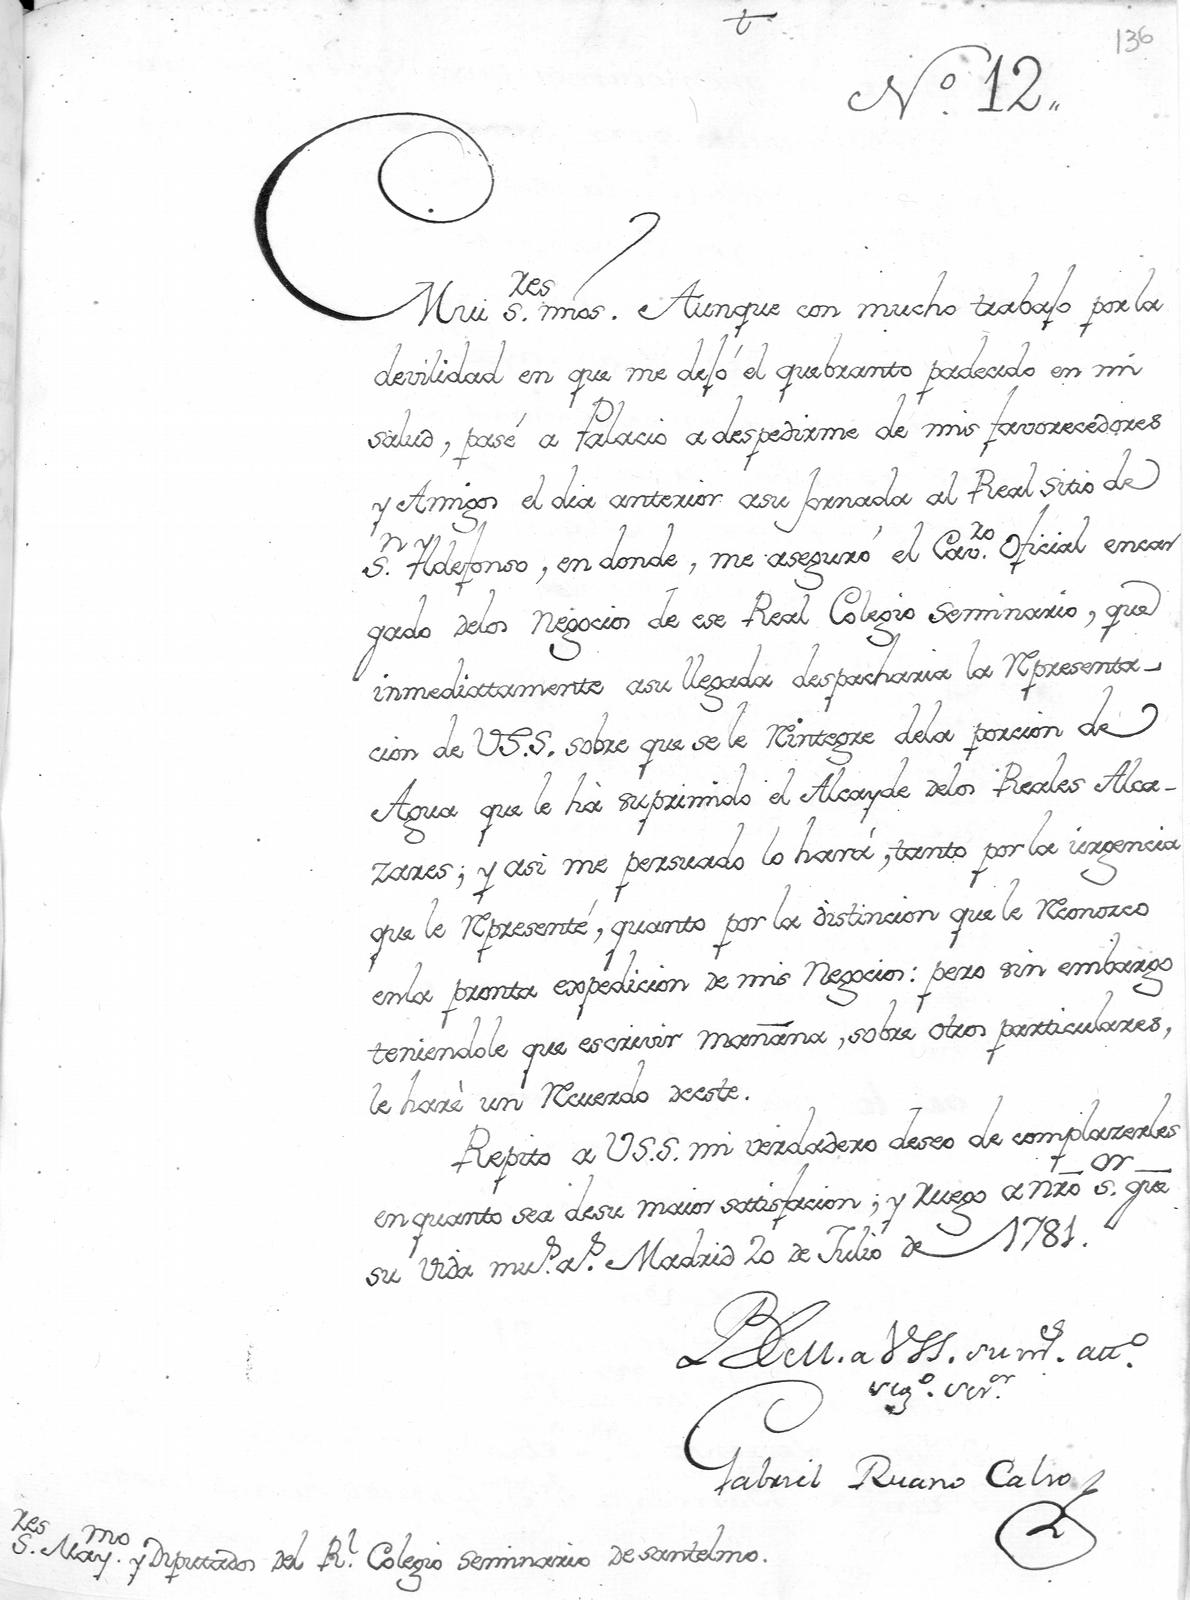 136
t
Nº. 12„
Mui S.res mios. Aunque con mucho trabajo por la
devilidad en que me dejó el quebranto padecido en mi
salud, pasé a Palacio a despedirme de mis favorecedores
y Amigos el dia anterior a su Jornada al Real Sitio de
S.n Yldefonso, en donde, me aseguró el Cav.ro Oficial encar
gado delos Negocios de ese Real Colegio Seminario, que
inmediatamente a su llegada despacharia la Representa-
cion de VS.S. sobre que se le Reintegre dela porcion de
Agua que le hà suprimido el Alcayde delos Reales Alca-
zares; y asi me persuado lo hará, tanto por la urgencia
que le Representé, quanto por la distincion que le Reconozco
enla pronta expedicion de mis Negocios: pero sin embargo
teniendole que escrivir mañana, sobre otros particulares,
le harè un Recuerdo deeste.
Repito a VS.S. mi verdadero deseo de complazerles
en quanto sea desu maior satisfacion; y ruego a nrō S.or gūe
su vida mu.s a.s Madrid 20 de Julio de 1781.
BLM. a VSS. su m.s att.o
seg.o ser.or
Gabriel Ruano Calvo
S.res May.mo y Diputados del R.l Colegio Seminario de santelmo.